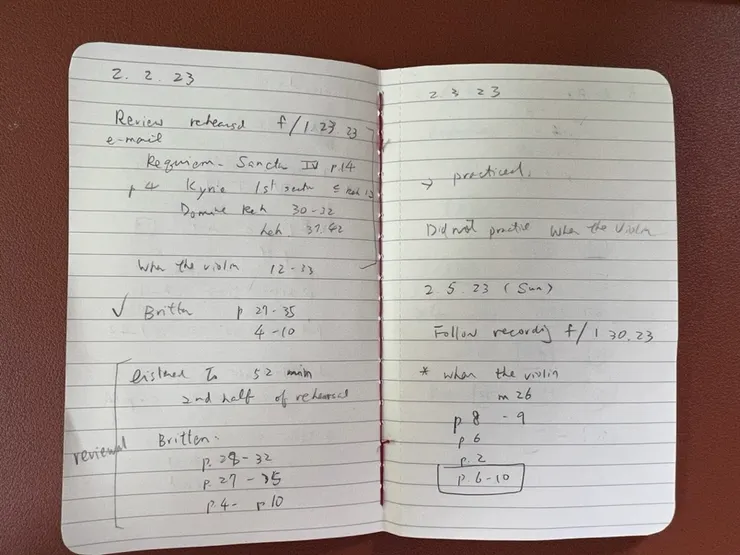 2. 2. 23
Review rehearsal f/1. 23. 23
e-mail
Requiem - Sanctu IV p.14
p 4 Kyrie 1st
Domine Reh 30-32
Reh 37.42
When the violin 12-23
✓ Britten p 27-35
4-10
listened to 52 min
2nd half of rehearsal
reviewed
Britten:
p. 28-32
p. 27-35
p. 4 - p. 10
2. 3. 23
→ practiced.
Did not practice When the Violin
2. 5. 23 (Sun)
Follow recording f/1 30. 23
* when the violin
m 26
p 8 - 9
p 6
p. 2
p. 6-10